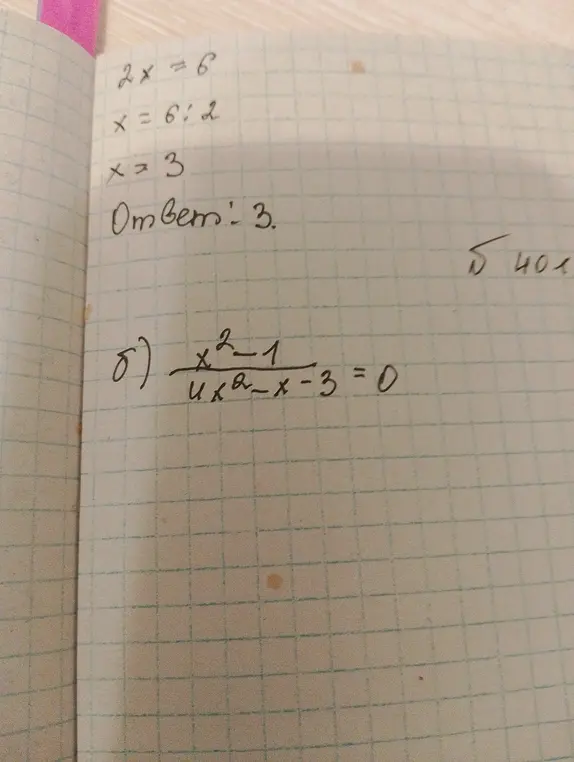 2x = 6
x = 6 : 2
x = 3
Ответ: 3.
б) x² - 1 / 4x² - x - 3 = 0